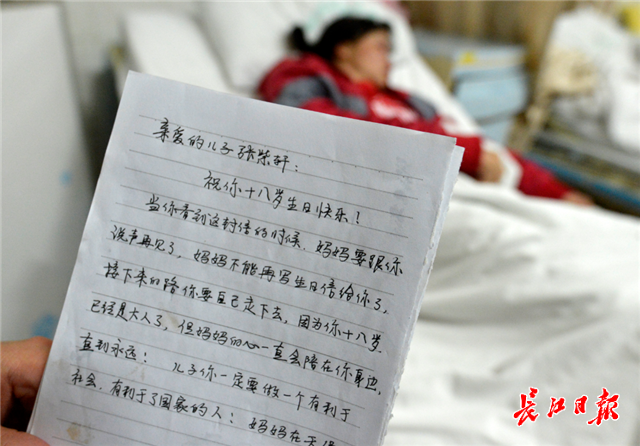 亲爱的儿子张荣轩:
祝你十八岁生日快乐!
当你看到这封信的时候,妈妈要跟你
说声再见了,妈妈不能再写生日信给你了,
接下来的路你要自己走下去,因为你十八岁
已经是大人了,但妈妈的心一直会陪在你身边,
直到永远: 儿子你一定要做一个有利于
社会,有利于了国家的人: 妈妈在天
长江日报